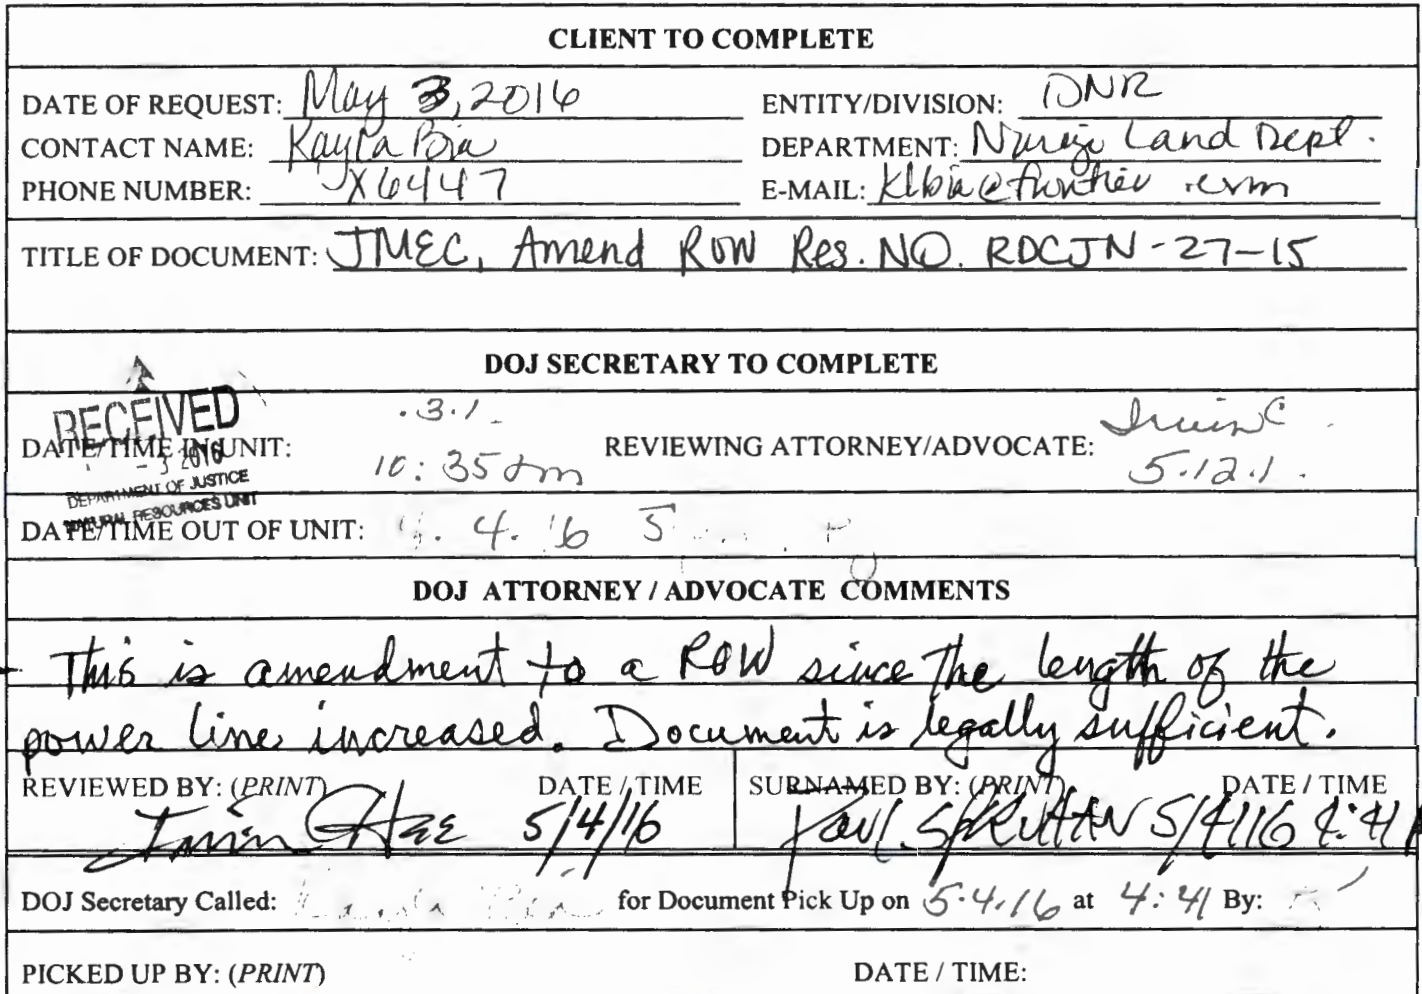 CLIENT TO COMPLETE
DATE OF REQUEST: May 3, 2016 ENTITY/DIVISION: DNR
CONTACT NAME: Kayla Bia DEPARTMENT: Navajo Land Dept.
PHONE NUMBER: X6447 E-MAIL: klbia@frontier.com
TITLE OF DOCUMENT: JMEC, Amend ROW Res. NO. RDCJN-27-15
DOJ SECRETARY TO COMPLETE
RECEIVED
DATE/TIME IN UNIT: 10:35am REVIEWING ATTORNEY/ADVOCATE: Irvin C
- 3 2016
DEPARTMENT OF JUSTICE
NATURAL RESOURCES UNIT
DATE/TIME OUT OF UNIT: 4.16
DOJ ATTORNEY / ADVOCATE COMMENTS
This is amendment to a ROW since the length of the
power line increased. Document is legally sufficient.
REVIEWED BY: (PRINT) DATE / TIME SURNAMED BY: (PRINT) DATE / TIME
Irvin 5/4/16 Paul 5/4/16 4:41
DOJ Secretary Called: for Document Pick Up on 5.4.16 at 4:41 By:
PICKED UP BY: (PRINT) DATE / TIME: